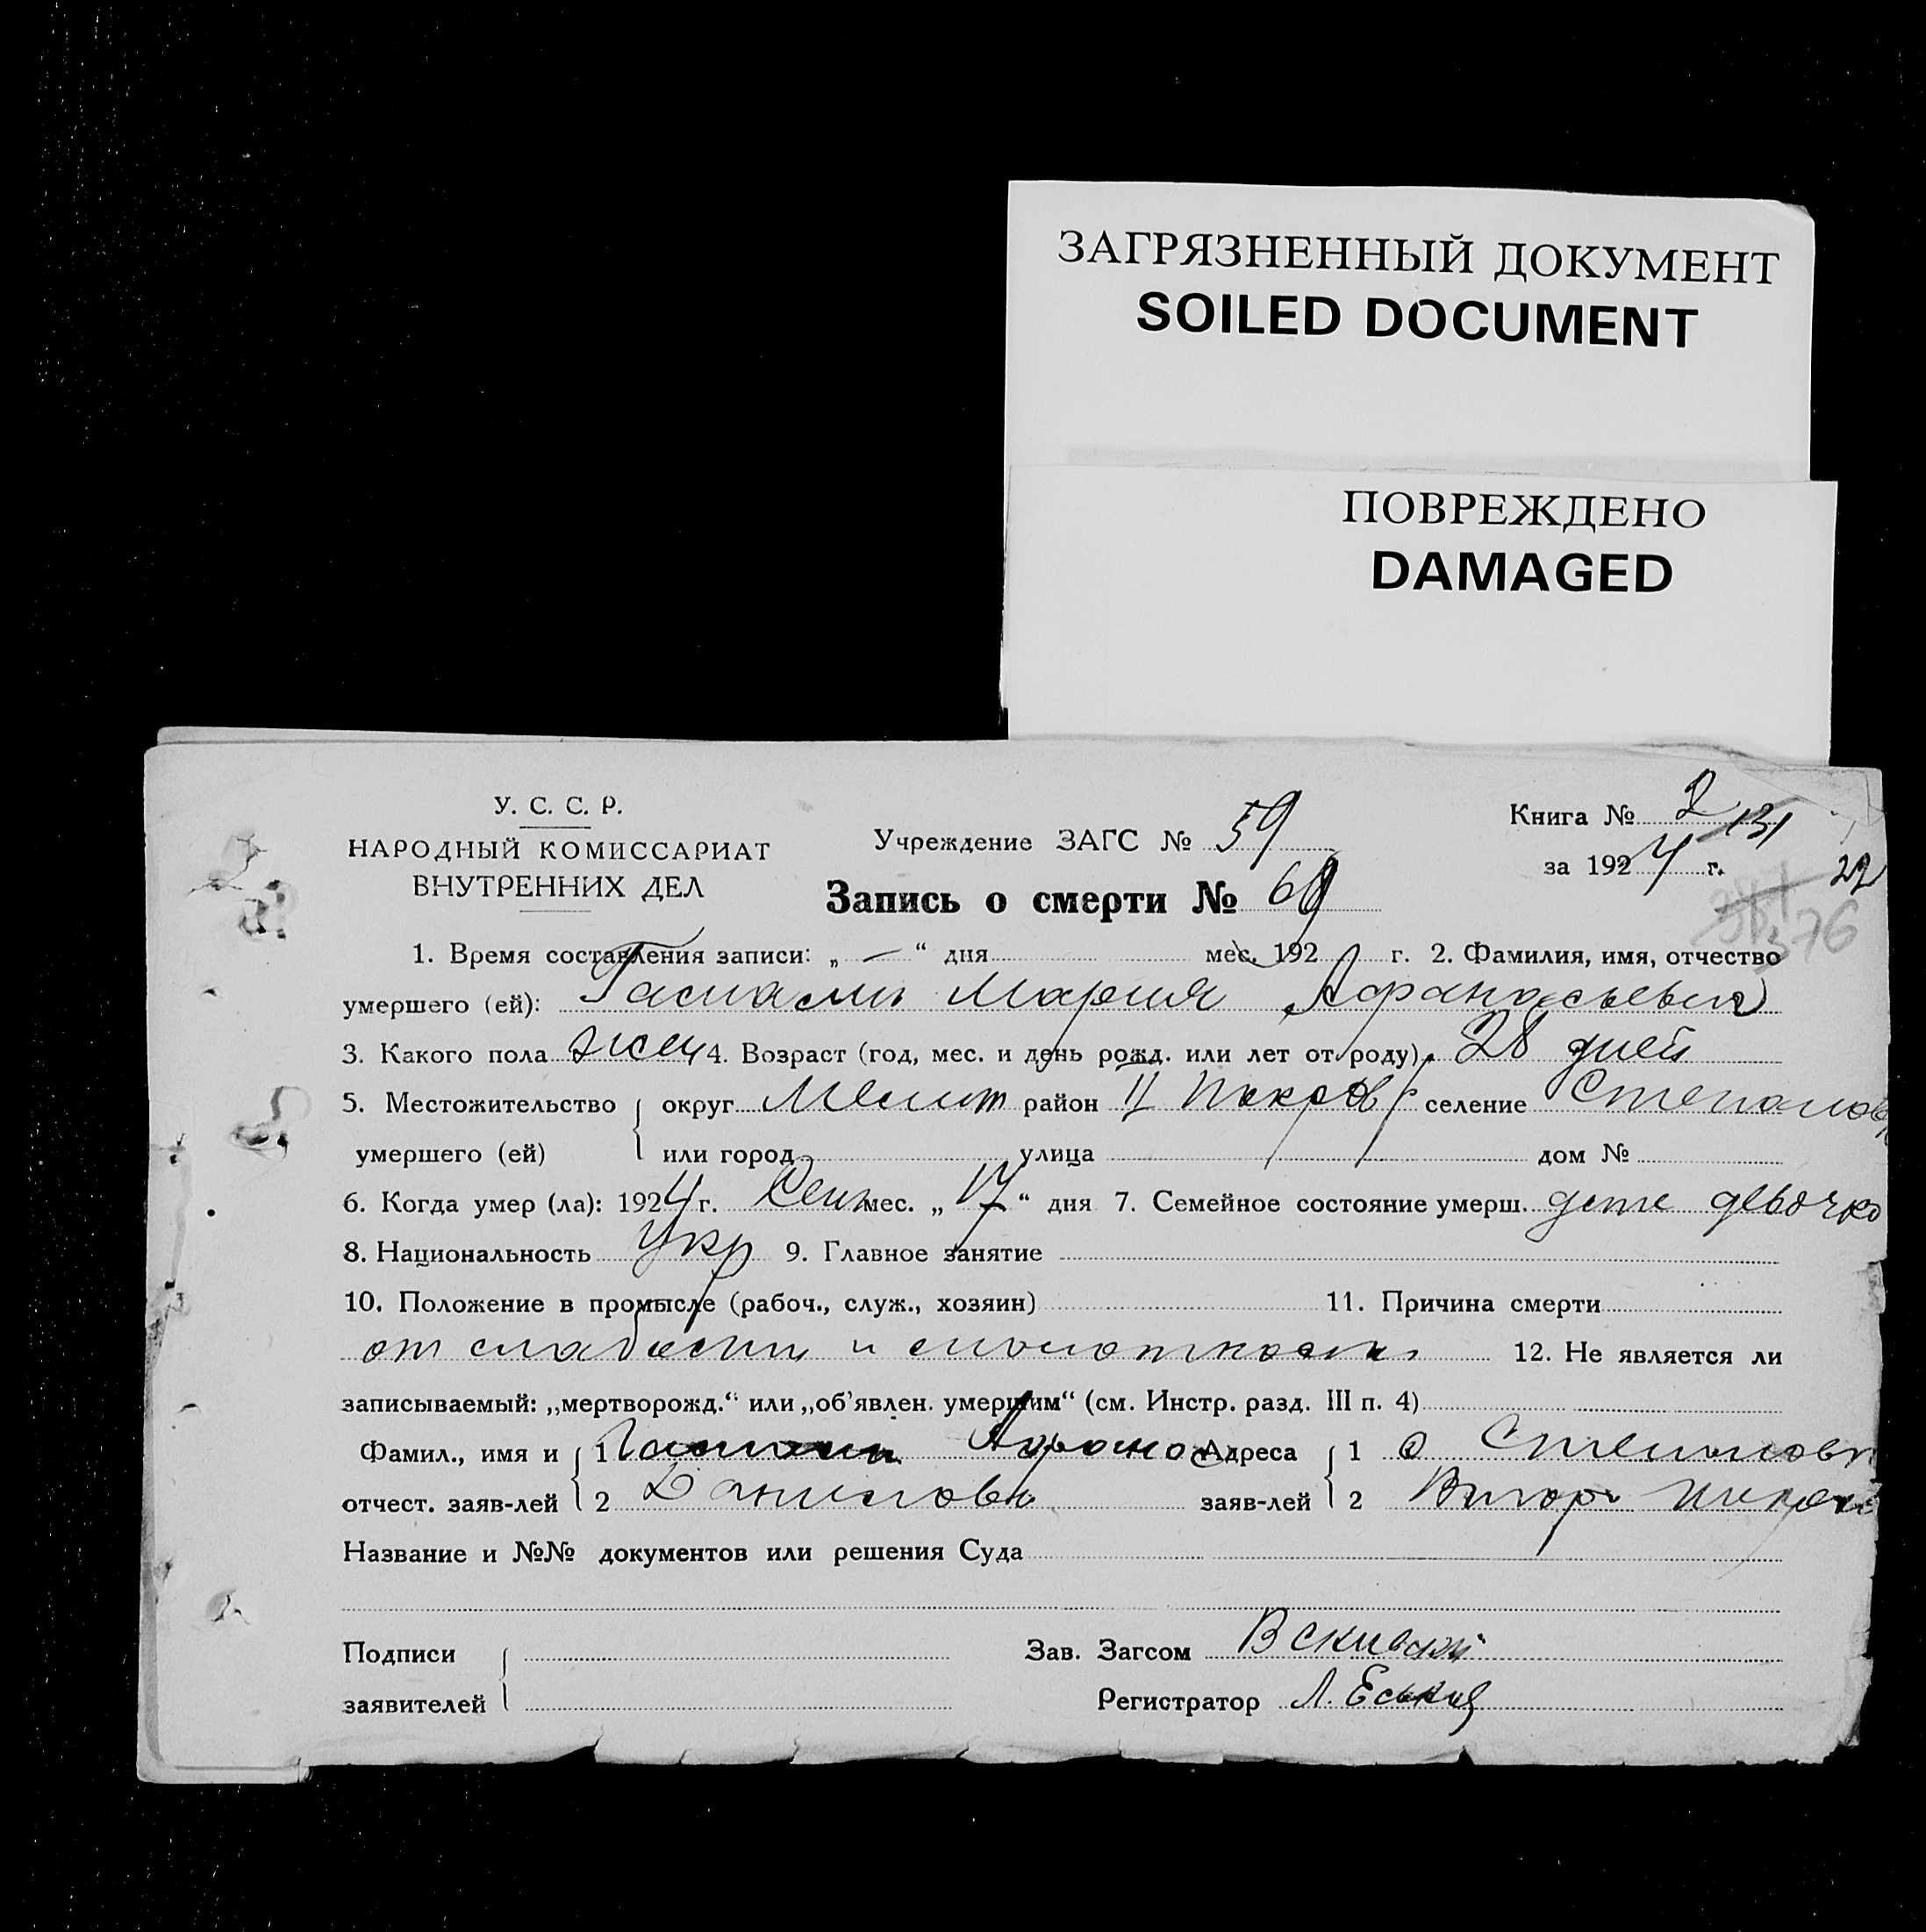 ЗАГРЯЗНЕННЫЙ ДОКУМЕНТ
SOILED DOCUMENT
ПОВРЕЖДЕНО
DAMAGED
У. С. С. Р.
НАРОДНЫЙ КОМИССАРИАТ
ВНУТРЕННИХ ДЕЛ
Учреждение ЗАГС № 59
Запись о смерти № 69
Книга № 2 131
за 1924 г. 22
376
1. Время составления записи: „ — “ дня мес. 192 г. 2. Фамилия, имя, отчество
умершего (ей): Мария Афанасьевн
3. Какого пола жен 4. Возраст (год, мес. и день рожд. или лет от роду) 28 дней
5. Местожительство округ Мелит район II Покров селение Степановк
умершего (ей) или город улица дом №
6. Когда умер (ла): 1924 г. Сент мес. „ 17 “ дня 7. Семейное состояние умерш. дете девочко
8. Национальность Укр 9. Главное занятие
10. Положение в промысле (рабоч., служ., хозяин) 11. Причина смерти
от слабости и 12. Не является ли
записываемый: „мертворожд.“ или „об’явлен. умершим“ (см. Инстр. разд. III п. 4)
Фамил., имя и 1 Афанас Адреса 1 с Степановк
отчест. заяв-лей 2 Данилови заяв-лей 2 Втор
Название и №№ документов или решения Суда
Подписи Зав. Загсом
заявителей Регистратор Л. Еськив